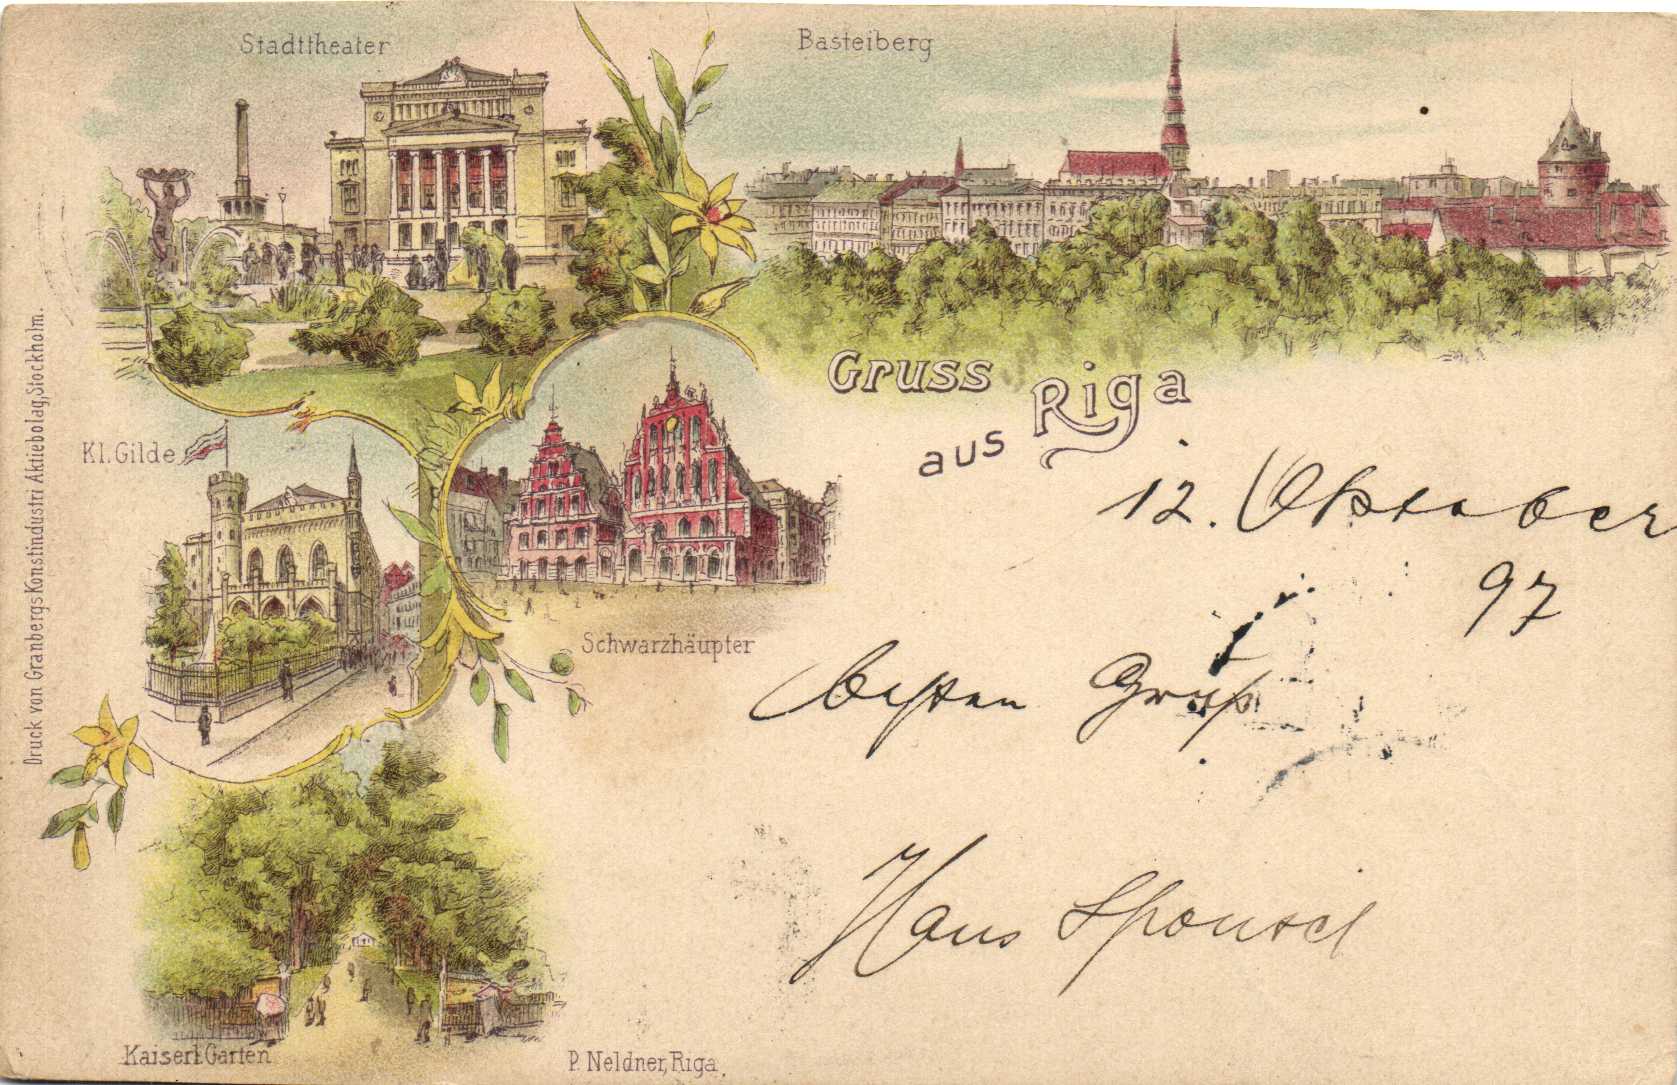 Stadttheater
Basteiberg
Gruss
aus Riga
Kl. Gilde
Schwarzhäupter
12. Oktober
97
besten Gruß
Hans
Kaiserl. Garten
P. Neldner, Riga
Druck von Granbergs Konstindustri Aktiebolag, Stockholm.